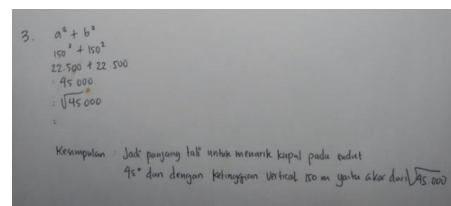 3. a² + b²
150² + 150²
22.500 + 22.500
: 45 000
: √45 000
:
Kesimpulan : Jadi panjang tali untuk menarik kapal pada sudut
45° dan dengan ketinggian vertical 150 m yaitu akar dari √45.000